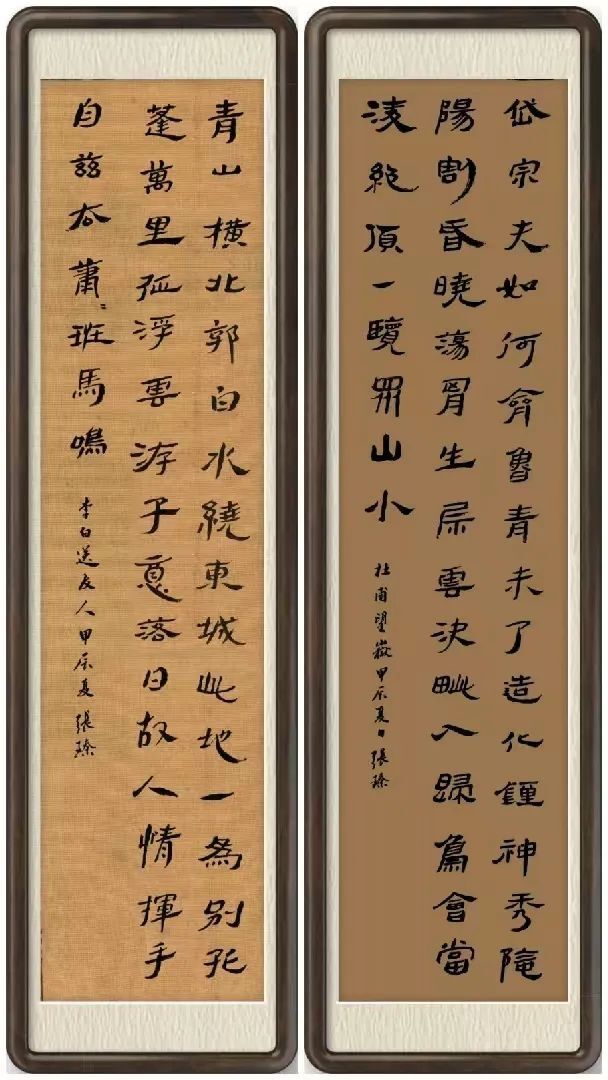 岱宗夫如何齊魯青未了造化鍾神秀陰
陽割昏曉蕩胷生層雲決眦入歸鳥會當
淩絕頂一覽眾山小
杜甫望嶽甲辰夏日張臻
青山橫北郭白水繞東城此地一為別孤
蓬萬里征浮雲游子意落日故人情揮手
自茲去蕭〻班馬鳴
李白送友人甲辰夏張臻